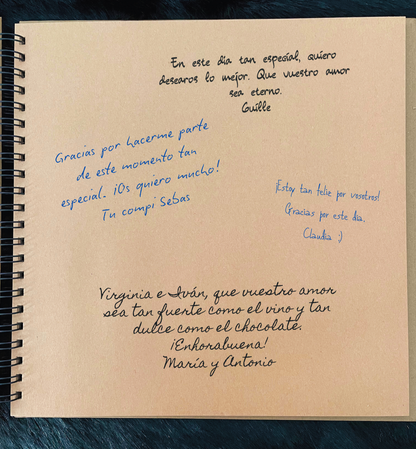 En este día tan especial, quiero
desearos lo mejor. Que vuestro amor
sea eterno.
Guille
Gracias por hacerme parte
de este momento tan
especial. ¡Os quiero mucho!
Tu compi Sebas
¡Estoy tan feliz por vosotros!
Gracias por este día.
Claudia :)
Virginia e Iván, que vuestro amor
sea tan fuerte como el vino y tan
dulce como el chocolate.
¡Enhorabuena!
María y Antonio